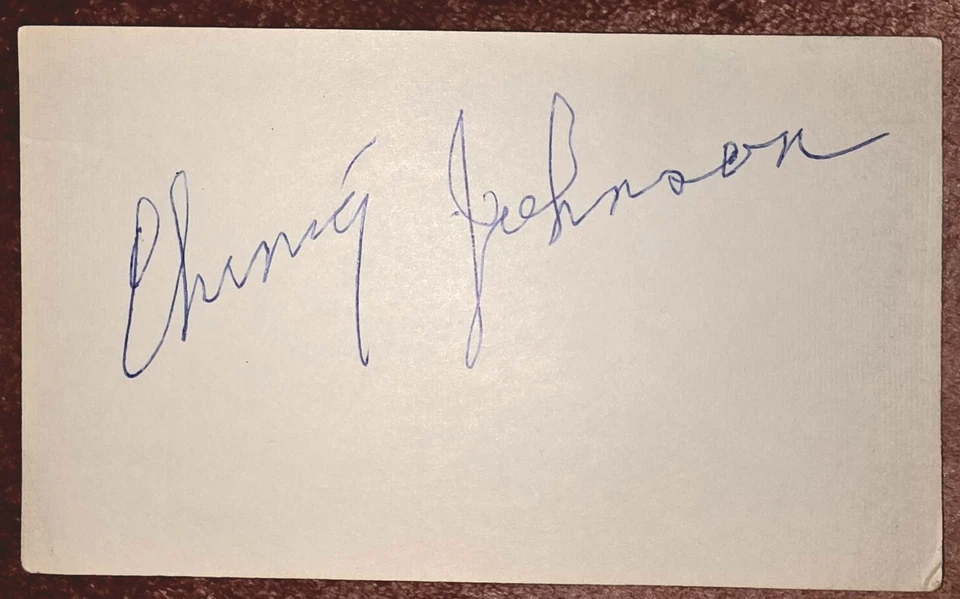 Ching Johnson